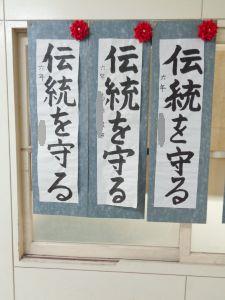 伝統を守る
六年
伝統を守る
六年
伝統を守る
六年